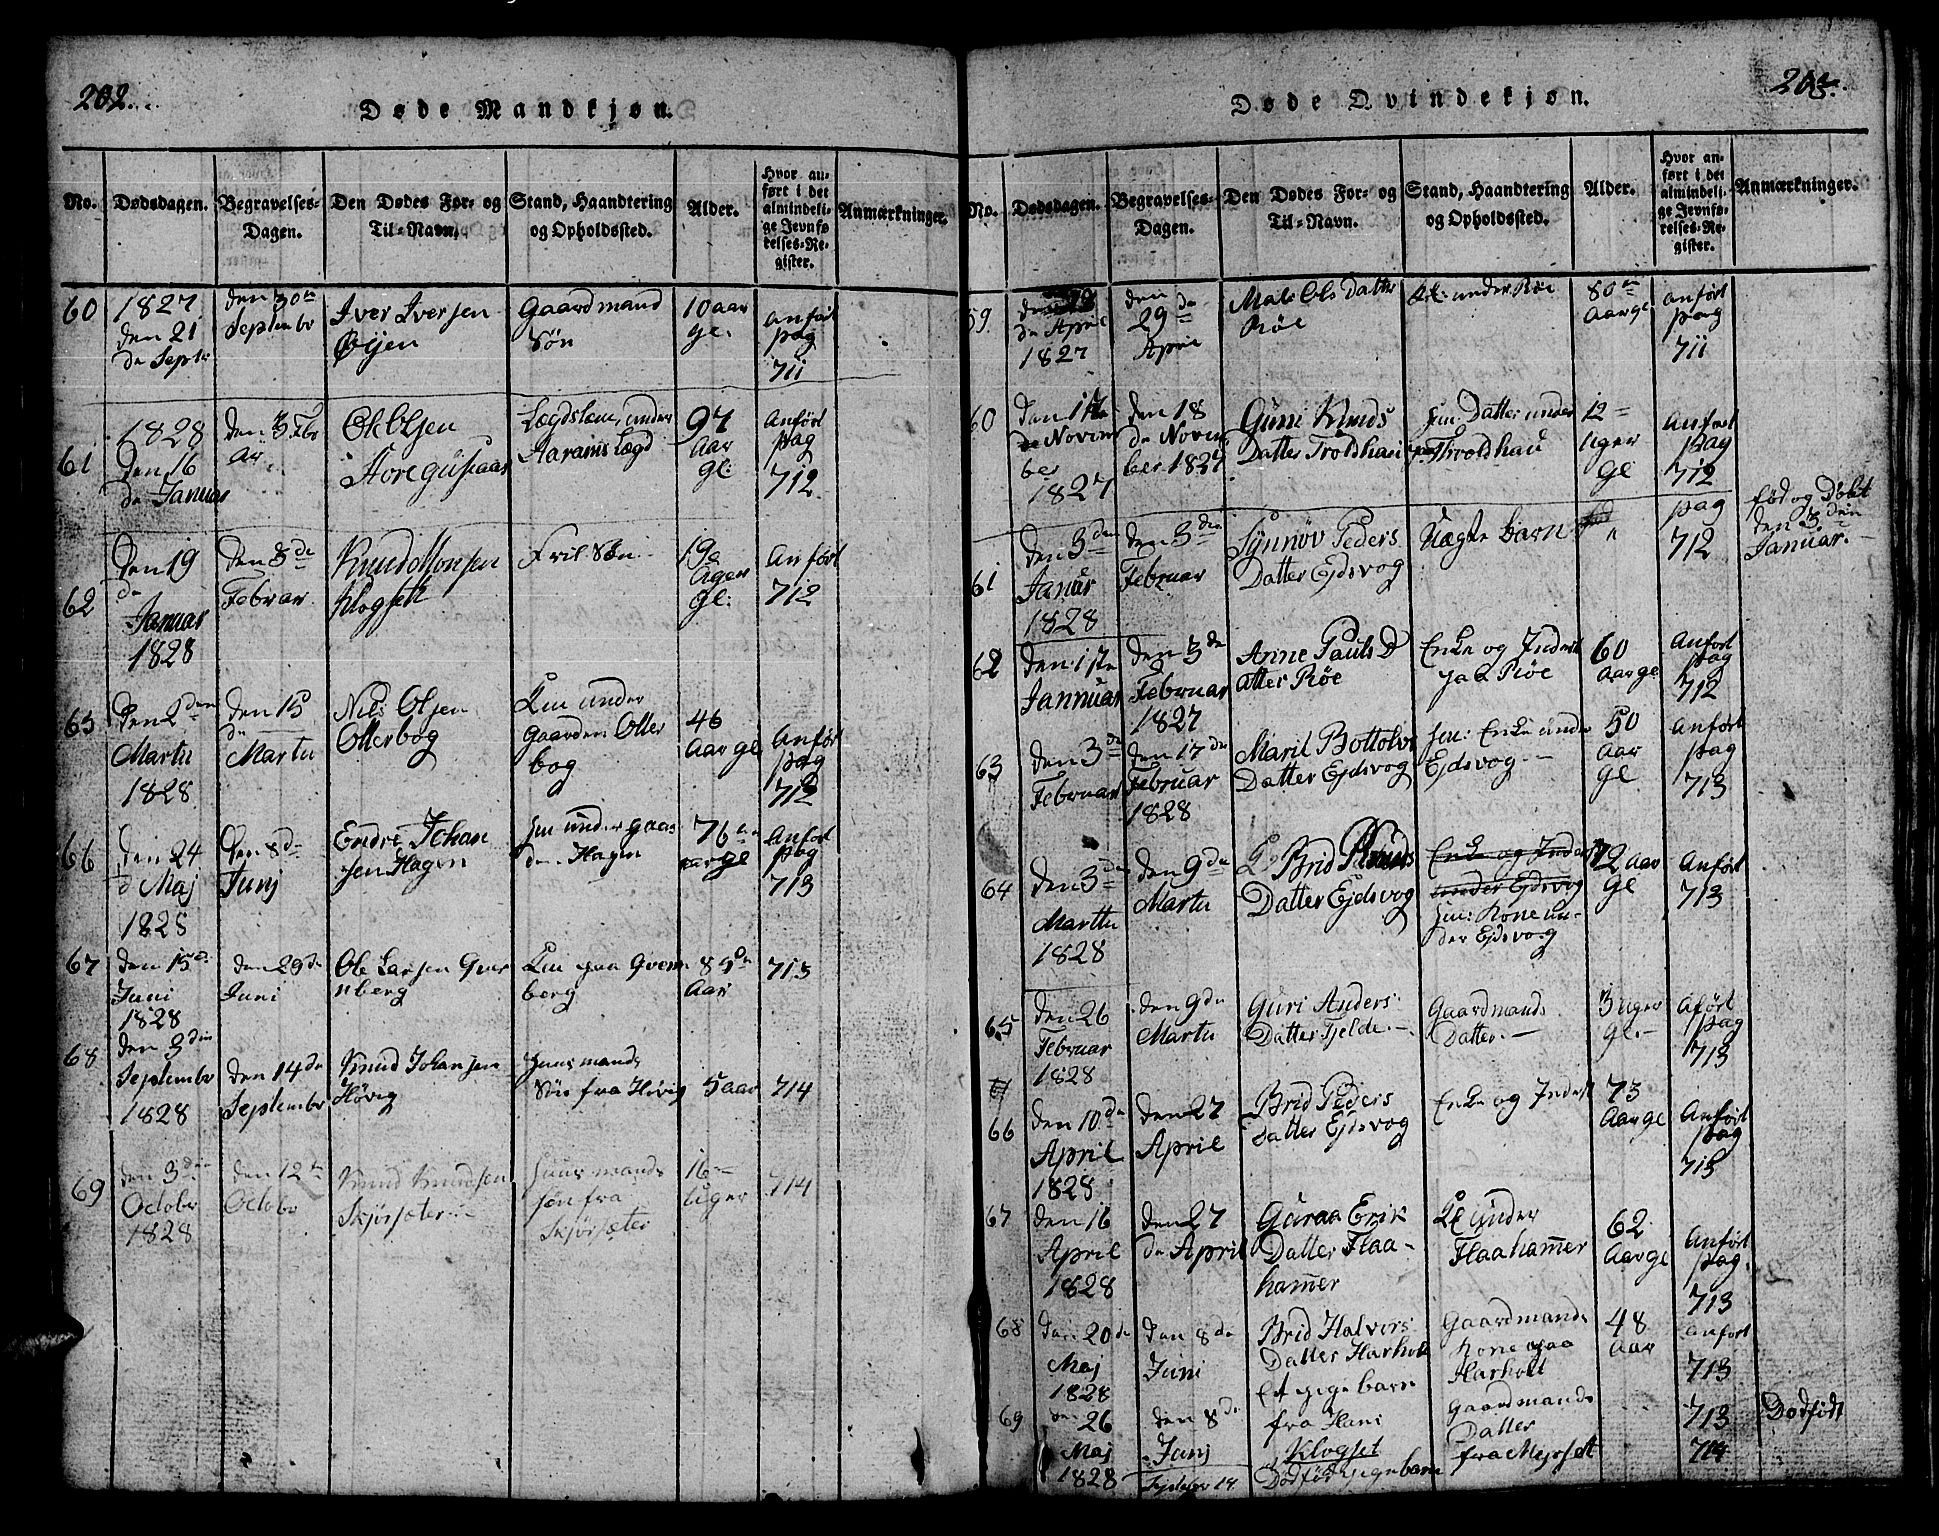 202.
Døde Mandkjøn.
No.
Dødsdagen.
Begravelses-
Dagen.
Den Dødes For- og
Til-Navn.
Stand, Haandtering
og Opholdssted.
Alder.
Hvor an-
ført i det
almindeli-
ge Jevnfø-
relses-Re-
gister.
Anmærkninger.
60
1827
den 21
de Septr
den 30te
Septembr
Iver Iversen
Øijen
Gaardmand
Søn
10 aar
gl.
anført
pag
711
61
1828
Den 16
de Januar
den 3 Fbr
ar
Ole Olsen
Lægdslem under
Aarams Lægd
97
Aar
gl:
Anført
pag
712
62
Den 19
de
Januar
1828
Den 8de
Februar
Knud Monsen
Klogseth
Fril Søn
19
Uger
gl:
Anført
712
65
Den 2den
Marti
1828
den 15
de
Marti
Nils Olsen
Otterbog
Lem under
Gaarden Otter
bog
46
Aar gl
Anført
pag
712
66
Den 24
d Maj
1828
Den 8de
Junj
Endre Johan
sen Hagen
huu under gaar
den Hagen
76
aar gl
Anført
pag
713
67
den 15de
Juni
1828
den 29de
Juni
Ole Larsen Gver
nberg
Lem paa Gvern
berg
85
Aar
713
68
den 3die
Septembr
1828
den 14de
Septembr
Knud Johansen
Høvig
Huusmands
Søn fra Høvig
5 aar
714
69
den 3die
Octobr
1828
den 12te
Octobr
Knud Knudsen
Skjørsæter
Huusmands
søn fra
Skjørsæter
16
uger
714
203.
Døde Qvindekjøn.
No.
Dødsdagen.
Begravelses-
Dagen.
Den Dødes For- og
Til-Navn.
Stand, Haandtering
og Opholdssted.
Alder.
Hvor an-
ført i det
almindeli-
ge Jevnfø-
relses-Re-
gister.
Anmærkninger.
59
de April
1827
den
29de
April
Mali Ols Datter
Røe
under Røe
80
aar gl
anført
pag
711
60
Den 17
de Novem
ber
1827
Den 18
de Novem
ber 1827
Guni Knuds
Datter Troldhau
huu Datter under
Troldhau
12
uger
gl
Anført
pag
712
61
Den 3den
Januar
1828
Den 3die
Februar
Synnøv Peders
Datter Ejdsvog
Uægte barn
"
pag
712
fød og Døbt
den 3die
Januar.
62
Den 1ste
Jannuar
Den 3de
Februar
1827
Anne Pauls D
atter Røe
Enke og Inderst
paa Røe
60
Aar gl
Anført
pag
712
63
Den 3de
Februar
Den 17de
Februar
1828
Maril Bottolvs
Datter Ejdsvog
huu: Enke under
Ejdsvog
50
Aar
gl
Anført
pag
713
64
Den 3de
Marttii
1828
Den 9de
Martii
Brid Knuds
Datter Ejdsvog
Enke og Inderst
under Ejdsvog
huu: Kone un-
der Ejdsvog
72 aar
gl
Anført
713
65
Den 26
Februar
1828
den 9de
Martii
Guri Anders
Datter Fjelde
Gaardmands
Datter
3 uger
gl
Aført
pag
713
66
Den 10de
April
1828
den 27
April
Brid Peders
Datter Ejdsvog
Enke og Inderst
73
Aar gl
Anført
pag
713
67
Den 16
April
1828
Den 27
de April
Guraa Erik
Datter Flaa-
hammer
Lem under
Flaahammer
62
Aar gl
Anført
pag.
713
68
den 20de
Maj
1828
Den 8de
Juni
Brid Halvors
Datter Harholt
Gaardmands
Kone paa
Harholt
48
Aar
anført
713
69
den 26
Maj
1828
den 8de
Junj
Et pigebarn
fra
Klogset
Gaardmands
Datter
713
Dødfødt
Dødfød pigebarn
fra Meyset
714